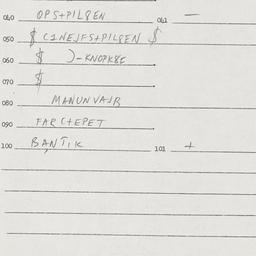 040 OPS+PILSEN 041 —
050 $ C1NEJFS+PILSEN $
060 $ )-KNOPK&C
070 $
080 MANUNVAJR
090 FARC+EPET
100 BANTIK 101 +